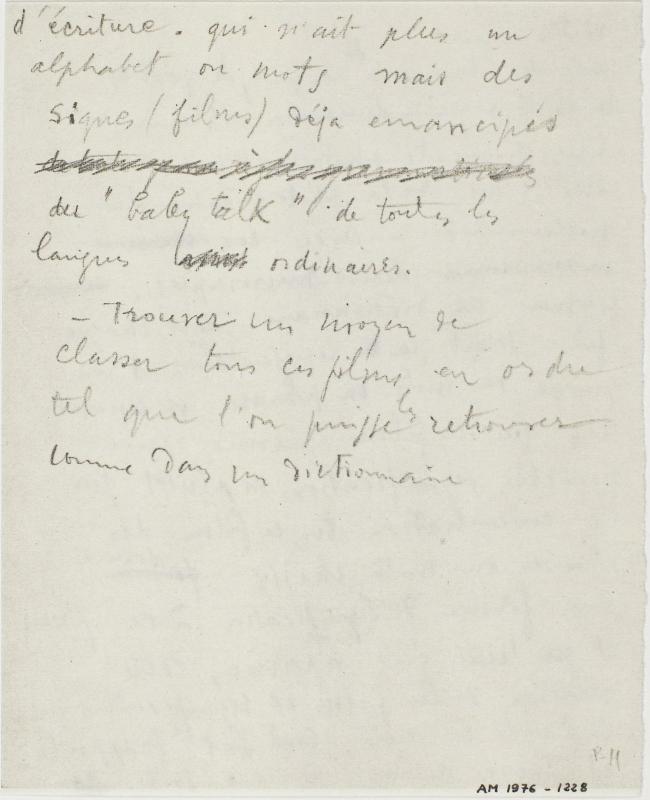 d'écriture. qui n'ait plus un
alphabet ou mots mais des
signes (films) déja emancipés
du "baby talk" de toutes les
langues ordinaires.
– Trouver un moyen de
classer tous ces films en ordre
tel que l'on puisse les retrouver
comme dans un dictionnaire
AM 1976 - 1228